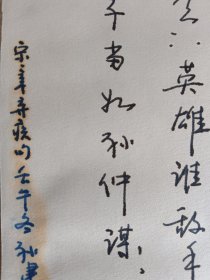 英雄谁敌手
子当如孙仲谋
宋辛弃疾句壬午冬孙